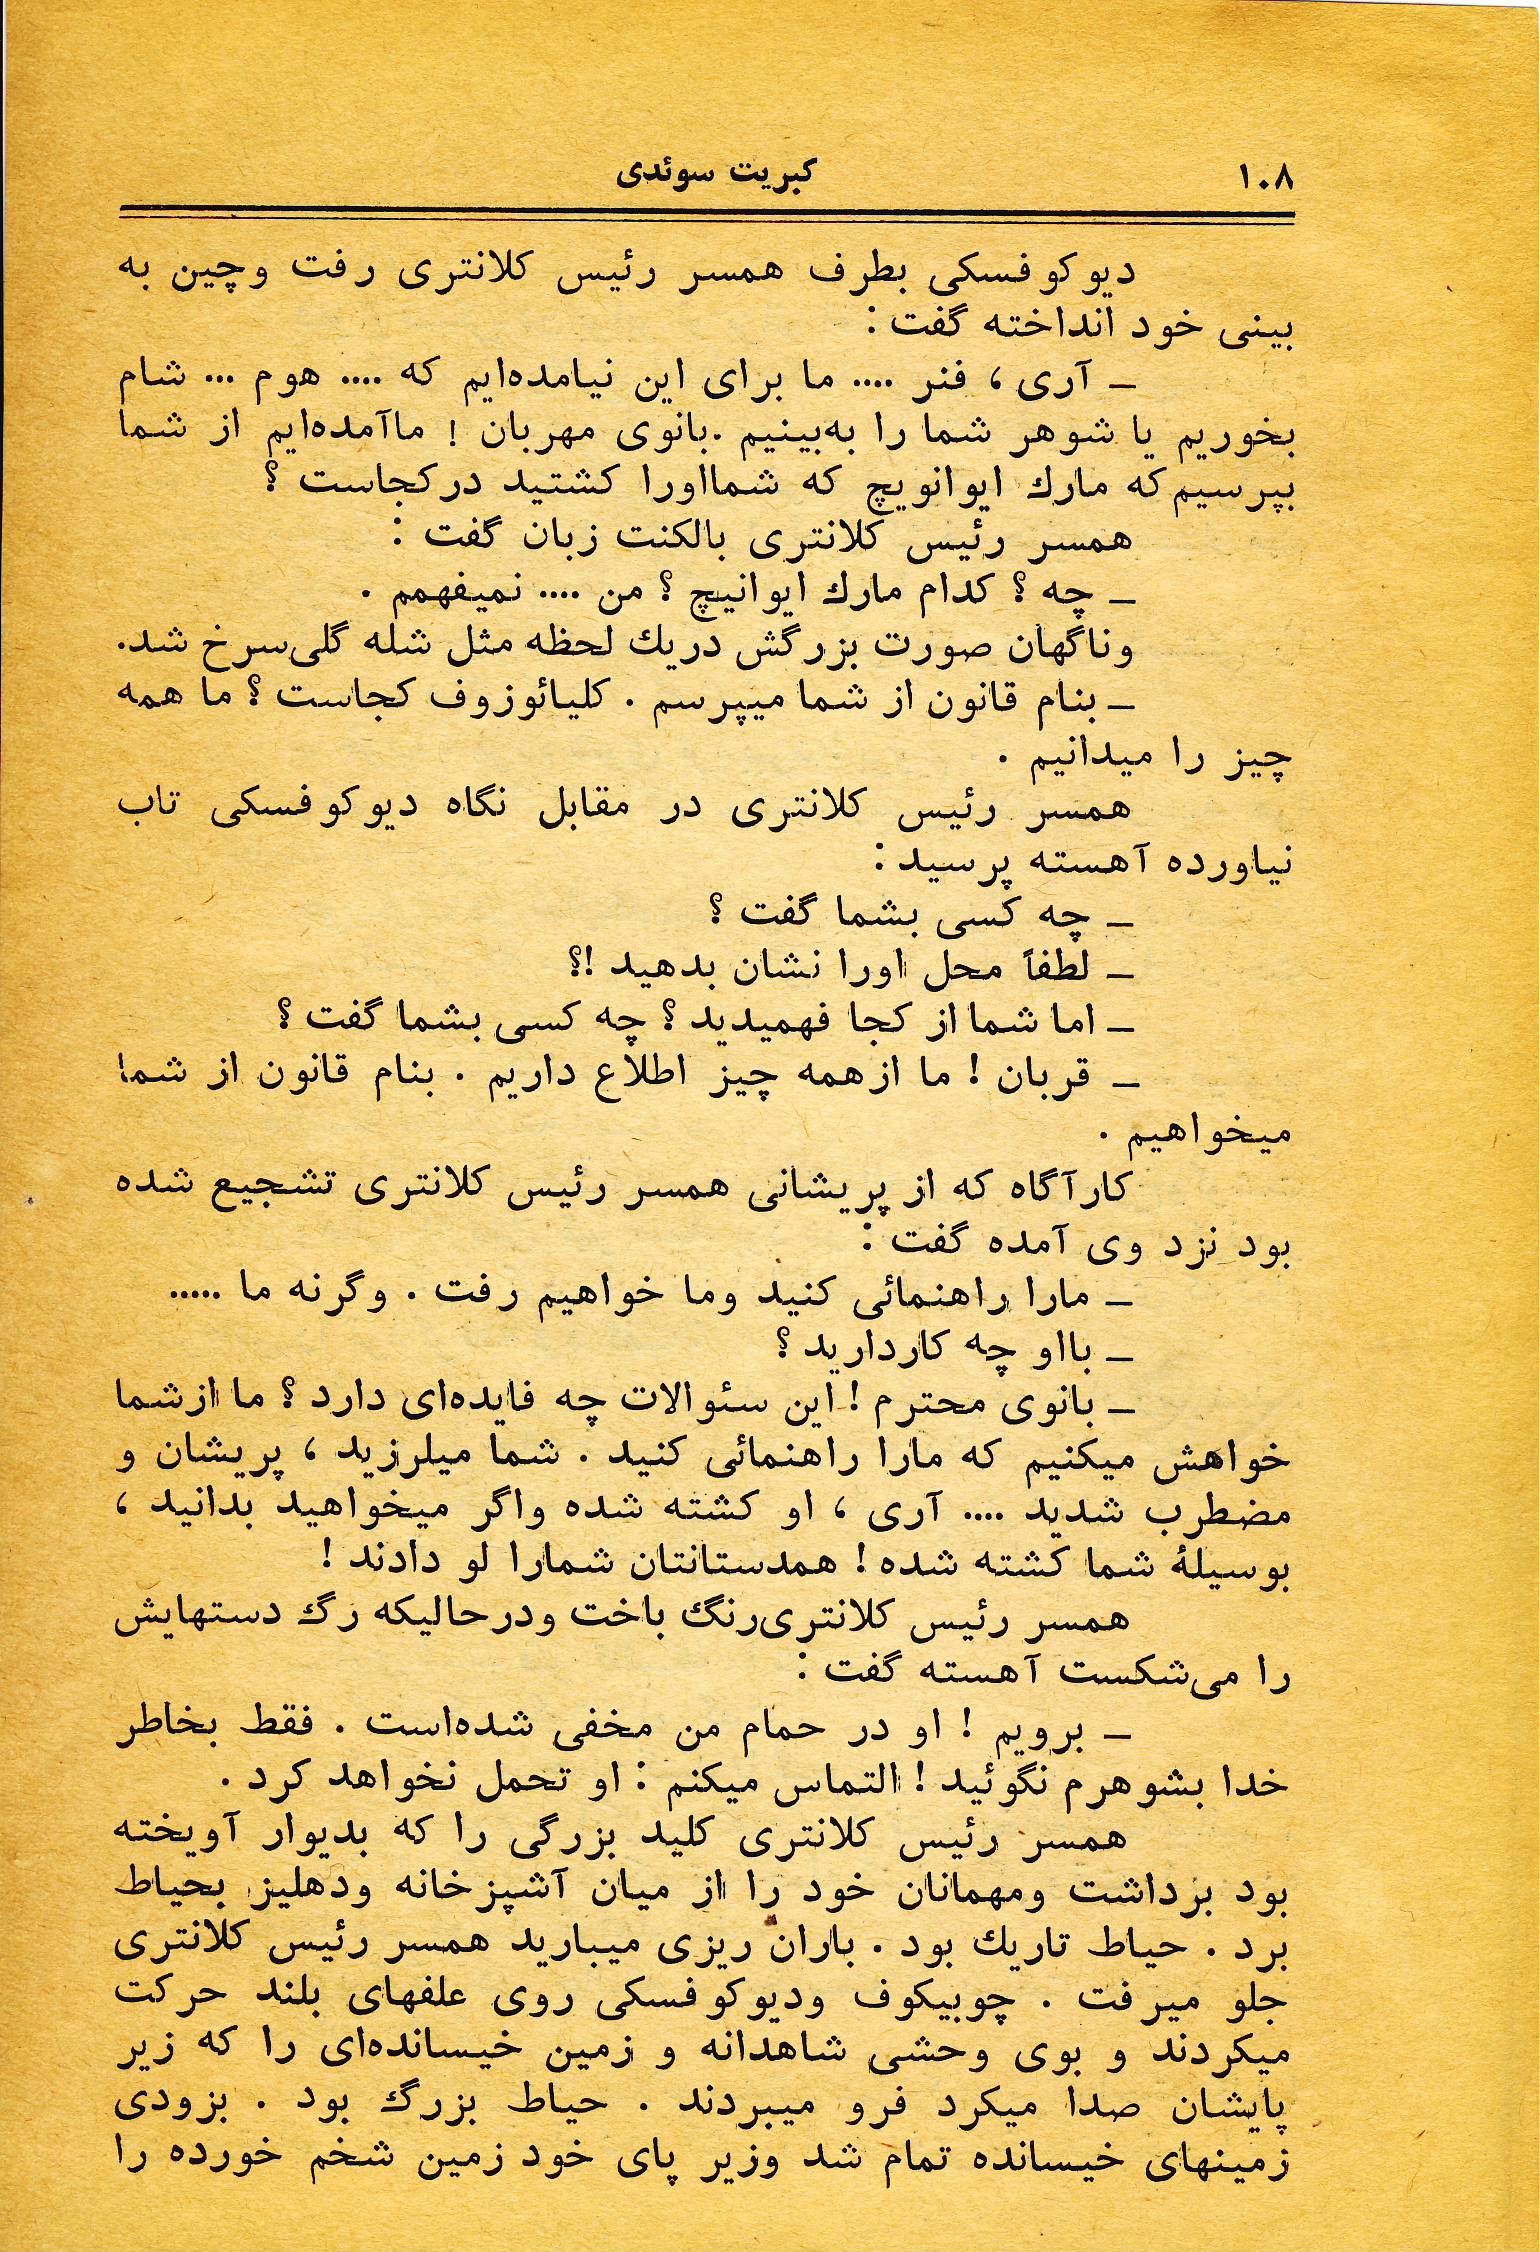 ۱۰۸
کبریت سوئدی
دیوکوفسکی بطرف همسر رئیس کلانتری رفت وچین به
بینی خود انداخته گفت :
ـ آری ، فنر .... ما برای این نیامده‌ایم که .... هوم ... شام
بخوریم یا شوهر شما را به‌بینیم .بانوی مهربان ! ماآمده‌ایم از شما
بپرسیم که مارك ایوانویچ که شمااورا کشتید درکجاست ؟
همسر رئیس کلانتری بالکنت زبان گفت :
ـ چه ؟ کدام مارك ایوانیچ ؟ من .... نمیفهمم .
وناگهان صورت بزرگش دریك لحظه مثل شله گلی‌سرخ شد.
ـ بنام قانون از شما میپرسم . کلیائوزوف کجاست ؟ ما همه
چیز را میدانیم .
همسر رئیس کلانتری در مقابل نگاه دیوکوفسکی تاب
نیاورده آهسته پرسید :
ـ چه کسی بشما گفت ؟
ـ لطفاً محل اورا نشان بدهید !؟
ـ اما شما از کجا فهمیدید ؟ چه کسی بشما گفت ؟
ـ قربان ! ما ازهمه چیز اطلاع داریم . بنام قانون از شما
میخواهیم .
کارآگاه که از پریشانی همسر رئیس کلانتری تشجیع شده
بود نزد وی آمده گفت :
ـ مارا راهنمائی کنید وما خواهیم رفت . وگرنه ما .....
ـ بااو چه کاردارید ؟
ـ بانوی محترم ! این سئوالات چه فایده‌ای دارد ؟ ما ازشما
خواهش میکنیم که مارا راهنمائی کنید . شما میلرزید ، پریشان و
مضطرب شدید .... آری ، او کشته شده واگر میخواهید بدانید ،
بوسیلهٔ شما کشته شده ! همدستانتان شمارا لو دادند !
همسر رئیس کلانتری‌رنگ باخت ودرحالیکه رگ دستهایش
را می‌شکست آهسته گفت :
ـ برویم ! او در حمام من مخفی شده‌است . فقط بخاطر
خدا بشوهرم نگوئید ! التماس میکنم : او تحمل نخواهد کرد .
همسر رئیس کلانتری کلید بزرگی را که بدیوار آویخته
بود برداشت ومهمانان خود را از میان آشپزخانه ودهلیز بحیاط
برد . حیاط تاریك بود . باران ریزی میبارید همسر رئیس کلانتری
جلو میرفت . چوبیکوف ودیوکوفسکی روی علفهای بلند حرکت
میکردند و بوی وحشی شاهدانه و زمین خیسانده‌ای را که زیر
پایشان صدا میکرد فرو میبردند . حیاط بزرگ بود . بزودی
زمینهای خیسانده تمام شد وزیر پای خود زمین شخم خورده را